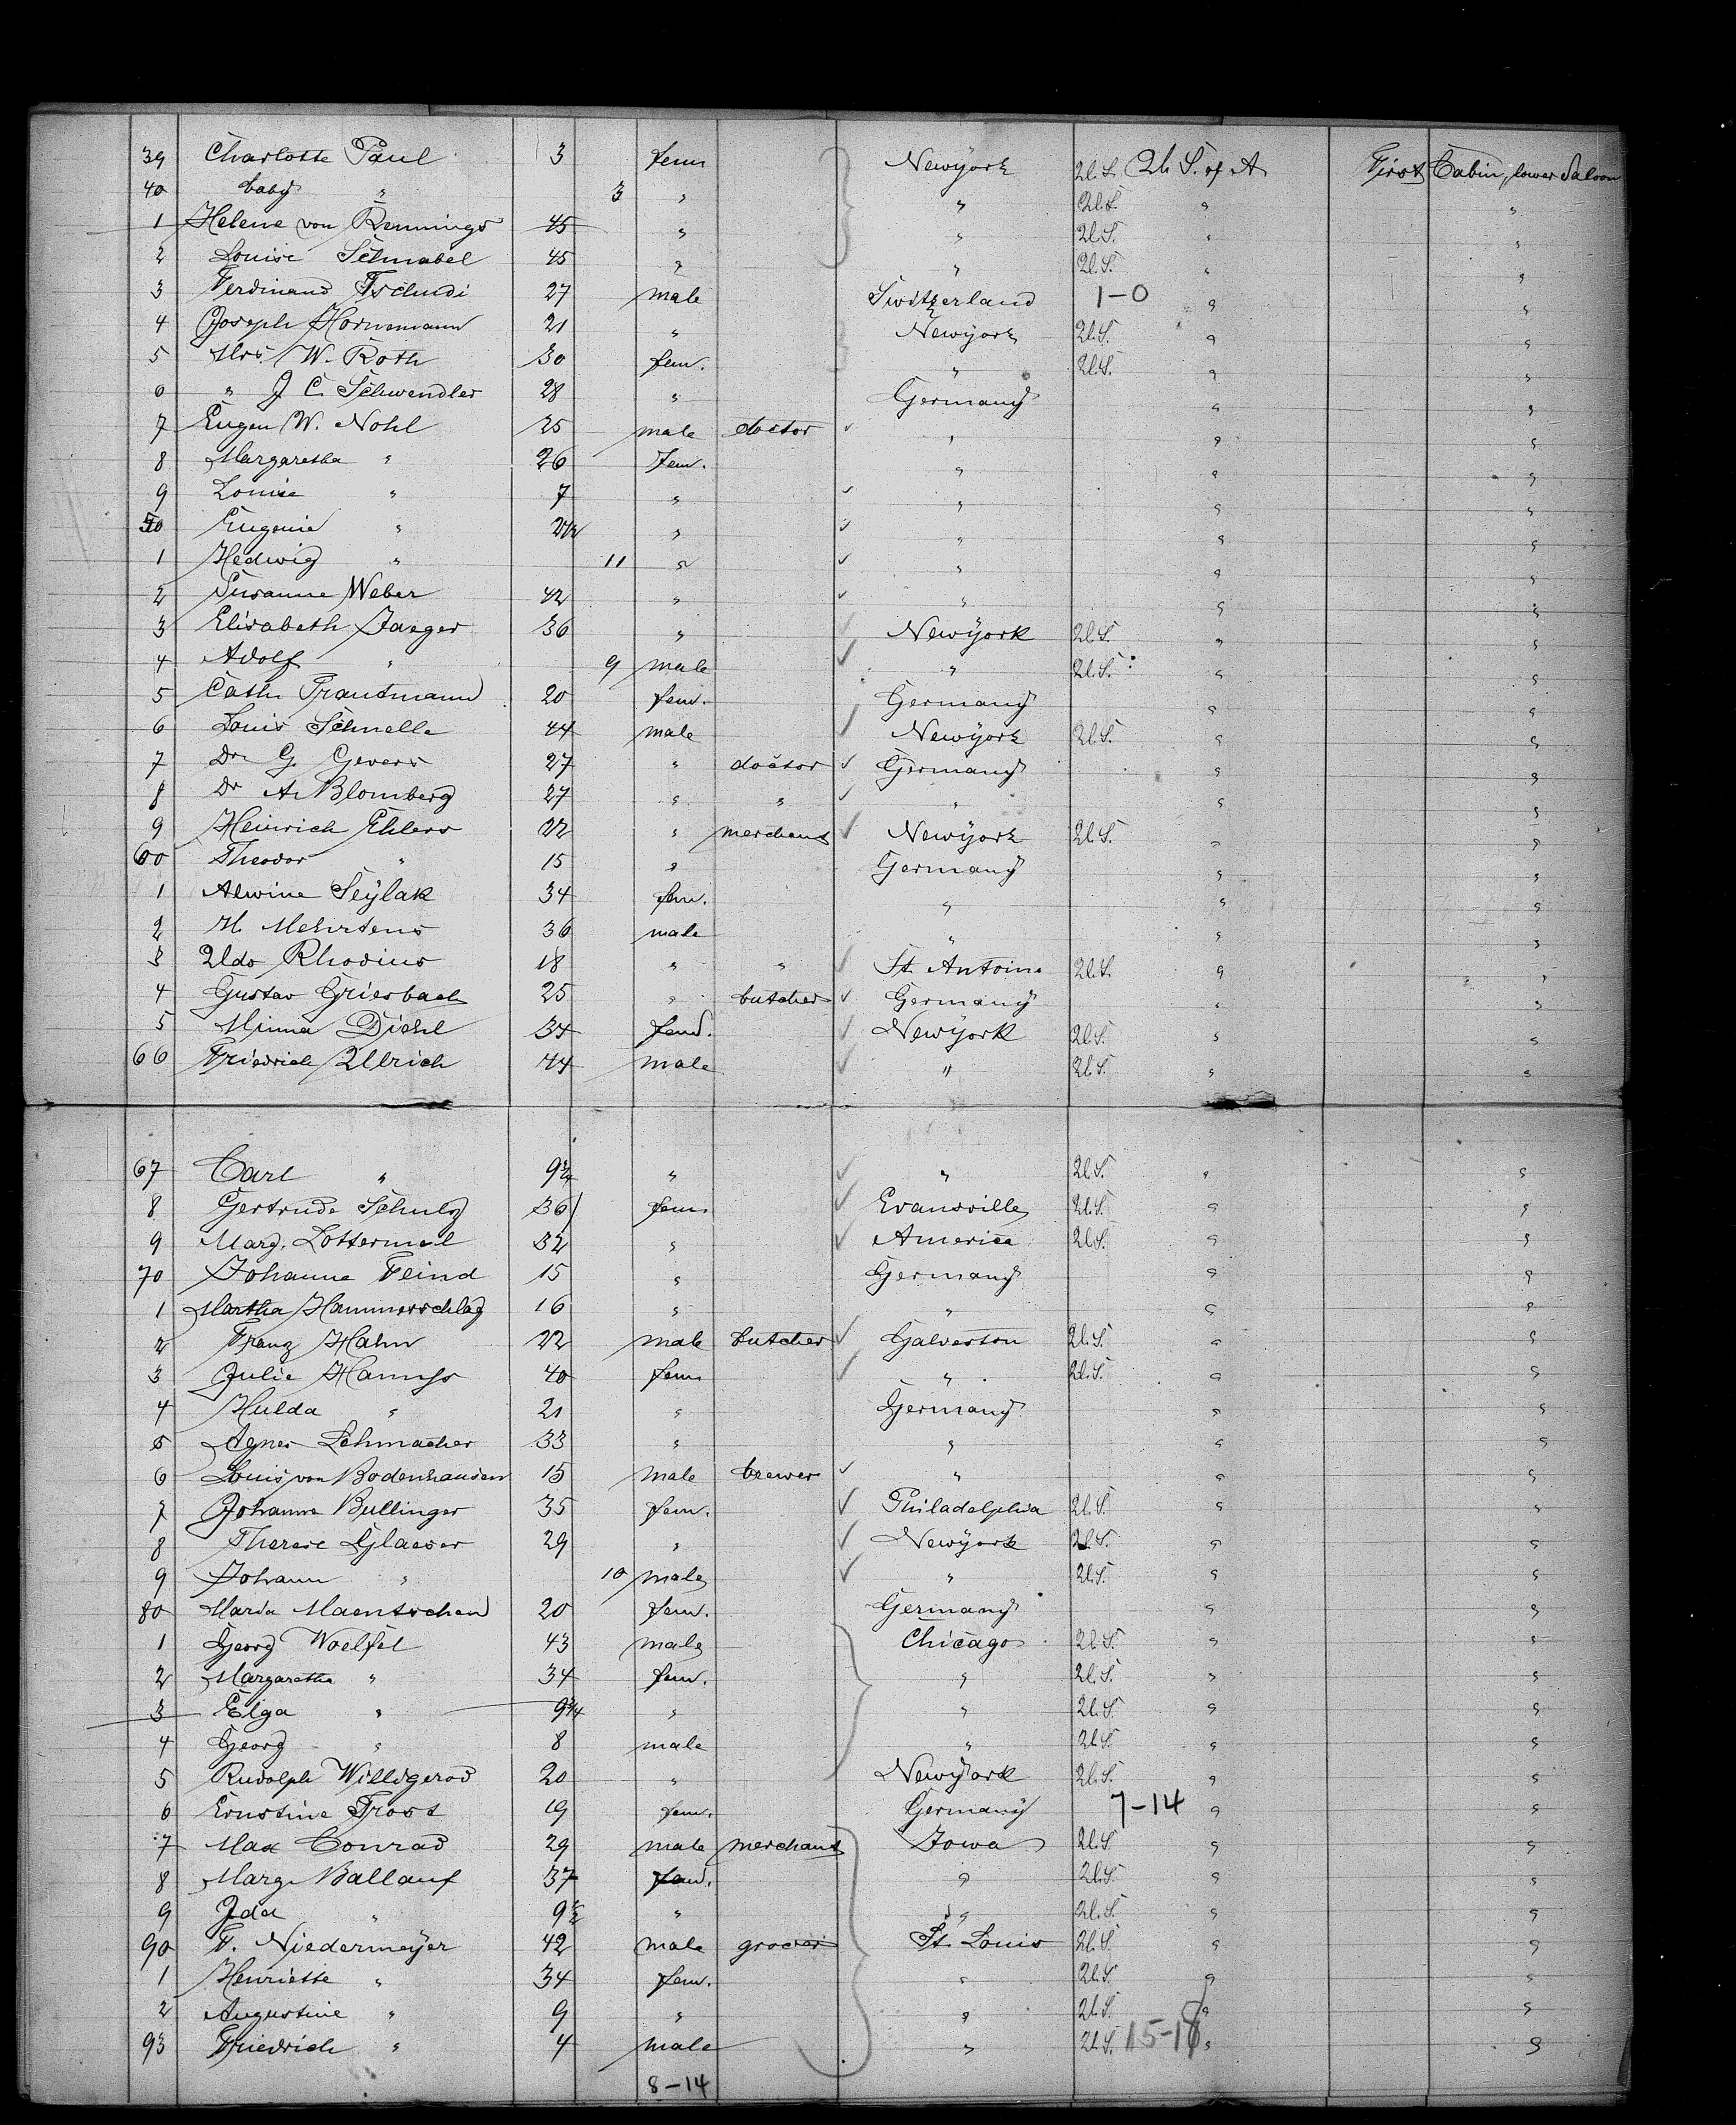 39 Charlotte Paul 3 fem Newyork U.S. U. S. of A First Cabin, lower Saloon
40 baby " 3 " " U.S. " "
1 Helene von Rennings 45 " " U.S. " "
2 Louise Schnabel 45 " " U.S. " "
3 Ferdinand Tschudi 27 male Switzerland 1-0 " "
4 Joseph Hornemann 21 " Newyork U.S. " "
5 Mrs. W. Roth 30 fem. " U.S. " "
6 " J C. Schwendler 28 " Germany " "
7 Eugen W. Nohl 25 male doctor ✓ " " "
8 Margaretha " 26 Fem. " " "
9 Louise " 7 " ✓ " " "
50 Eugenie " 2 1/2 " ✓ " " "
1 Hedwig " 11 " ✓ " " "
2 Susanne Weber 42 " ✓ " " "
3 Elisabeth Jaeger 36 " ✓ Newyork U.S. " "
4 Adolf " 9 male ✓ " U.S. " "
5 Cath. Trautmann 20 fem. Germany " "
6 Louis Schnelle 44 male ✓ Newyork U.S. " "
7 Dr G. Gevers 27 " doctor ✓ Germany " "
8 Dr A. Blomberg 27 " " ✓ " " "
9 Heinrich Ehlers 22 " merchant ✓ Newyork U.S. " "
60 Theodor " 15 " Germany " "
1 Alwine Seylak 34 fem. " " "
2 H. Mehrtens 36 male " " "
3 Udo Rhodius 18 " " ✓ St. Antoine U.S. " "
4 Gustav Griesbach 25 " butcher ✓ Germany " "
5 Minna Diehl 34 fem. ✓ Newyork U.S. " "
66 Friedrich Ullrich 44 male ✓ " U.S. " "
67 Carl " 9 3/4 " ✓ " U.S. " "
8 Gertrude Schulz 36 fem ✓ Evansville U.S. " "
9 Marg. Lottermel 32 " ✓ America U.S. " "
70 Johanne Feind 15 " Germany " "
1 Martha Hammerschlag 16 " " " "
2 Franz Hahn 22 male butcher ✓ Galveston U.S. " "
3 Julie 40 fem ✓ " U.S. " "
4 Hulda " 21 " Germany " "
5 Agnes Lehmacher 33 " " " "
6 Louis von Bodenhausen 15 male brewer ✓ " " "
7 Johanne Bullinger 35 fem. ✓ Philadelphia U.S. " "
8 Therese Glaeser 29 " ✓ Newyork U.S. " "
9 Johann " 10 male ✓ " U.S. " "
80 Maria Maentschen 20 fem. Germany " "
1 Georg Woelfel 43 male Chicago U.S. " "
2 Margaretha " 34 fem. " U.S. " "
3 Elga " 9 3/4 " " U.S. " "
4 Georg " 8 male " U.S. " "
5 Rudolph Willdgerod 20 " Newyork U.S. " "
6 Ernstine Trost 19 fem. Germany 7-14 " "
7 Max Conrad 29 male merchant Iowa U.S. " "
8 Marg. Ballauf 37 fem. " U.S. " "
9 Ida " 9 1/2 " " U.S. " "
90 F. Niedermeyer 42 male grocer St. Louis U.S. " "
1 Henriette " 34 fem. " U.S. " "
2 Augustine " 9 " " U.S. " "
93 Friedrich " 4 male " U.S. 15-18 " "
8-14